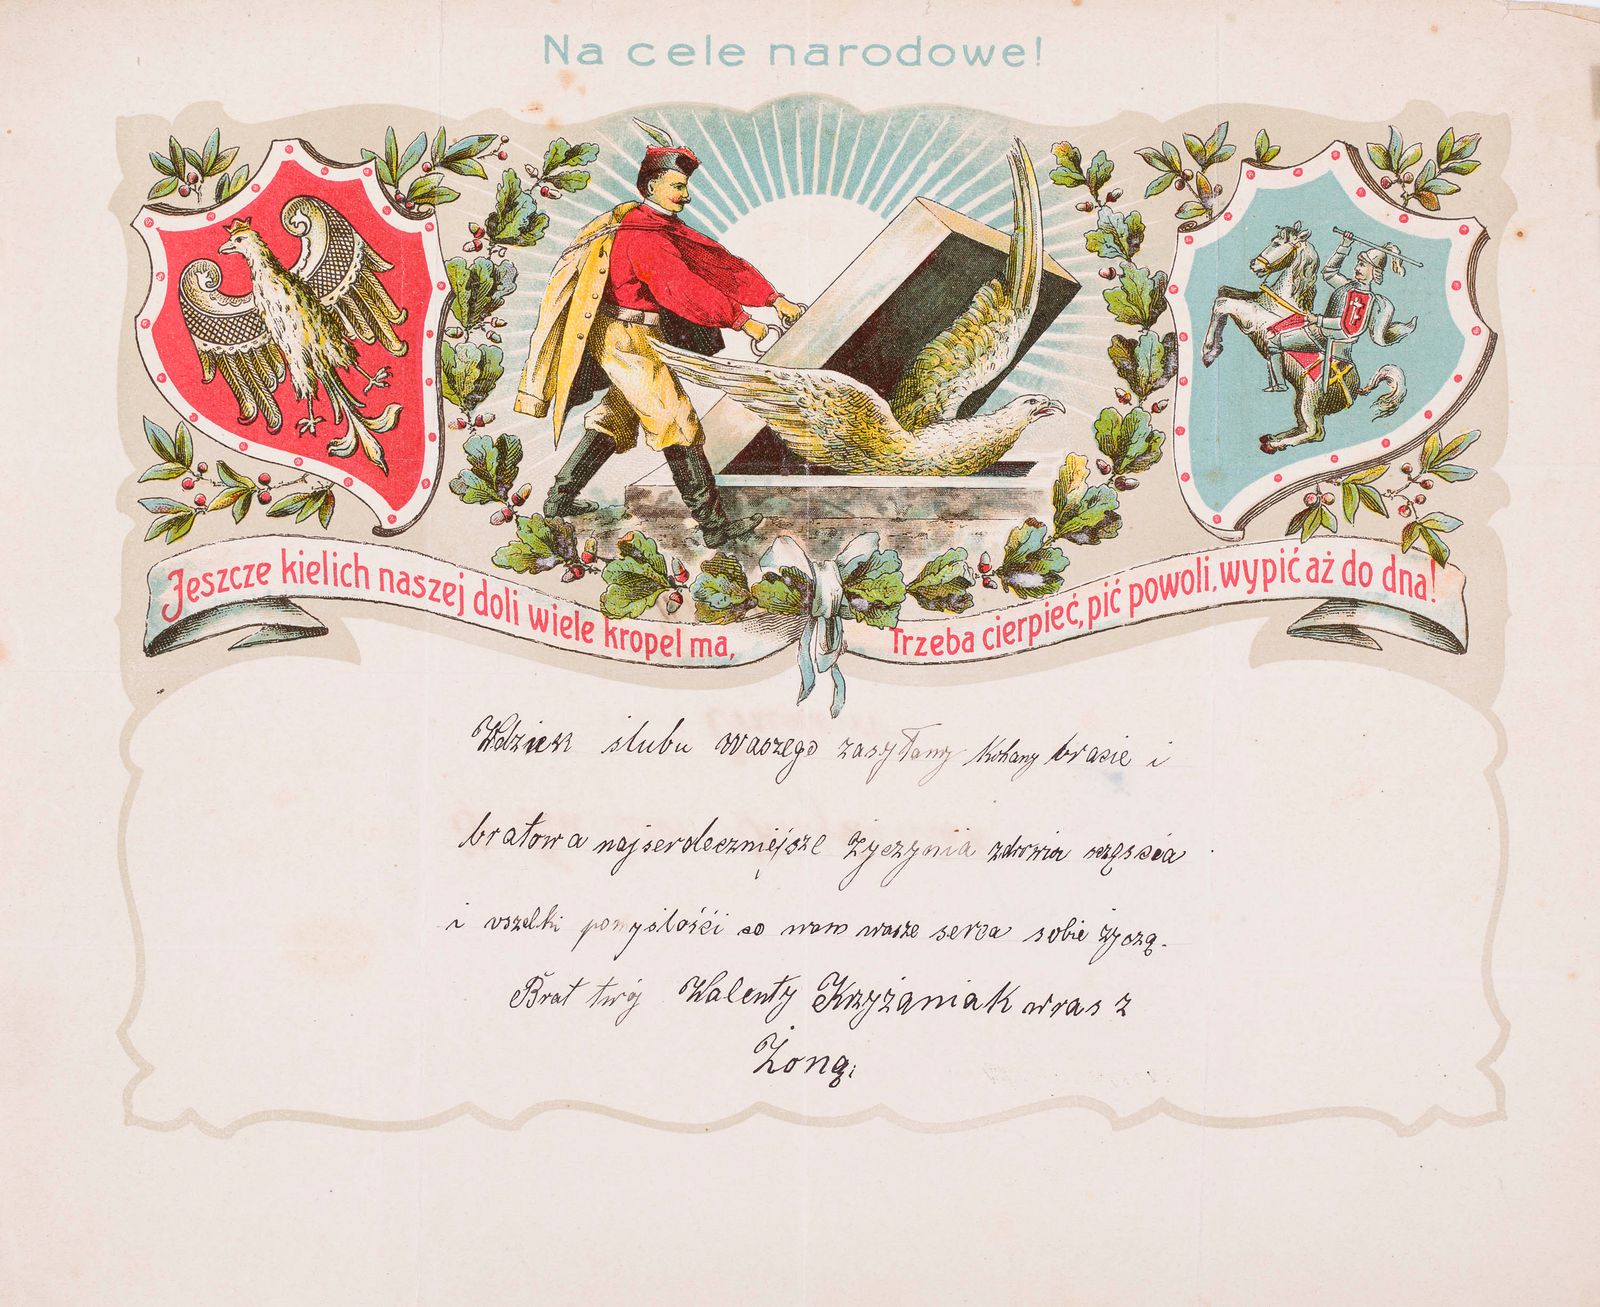 Na cele narodowe!
Jeszcze kielich naszej doli wiele kropel ma,
Trzeba cierpieć, pić powoli, wypić aż do dna!
Wdzień slubu waszego zasyłamy Kohany bracie i
bratowa najserdeczniejsze życzynia zdrowia sczęscia
i vszelki pomyslośći co wam wasze serca sobie życzą.
Brat twój Walenty Krzyżaniak wras z
Żoną.